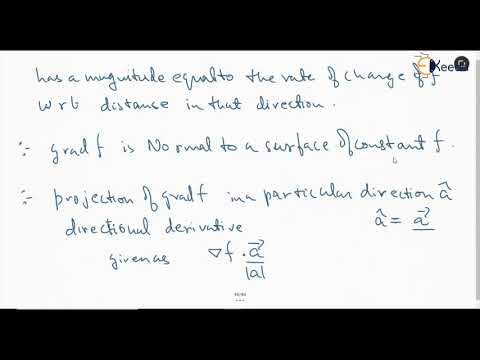 has a magnitude equal to the rate of change of f
w r t distance in that direction.
∵ grad f is Normal to a surface of constant f.
∵ projection of grad f in a particular direction â
directional derivative
â = a⃗
given as ∇f . a⃗
|a|